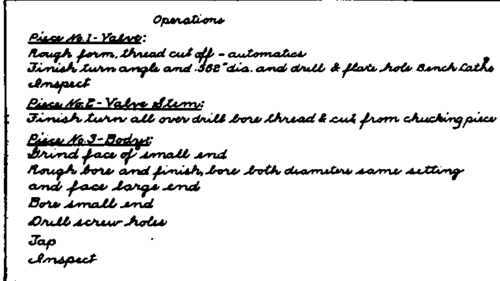 Operations
Piece No.1-Valve:
Rough form, thread cut off - automatics
Finish turn angle and .562" dia. and drill & flats hole Bench Lathe
Inspect
Piece No.2-Valve Stem:
Finish turn all over drill bore thread & cut from chucking piece
Piece No.3-Body:
Grind face of small end
Rough bore and finish, bore both diameters same setting
and face large end
Bore small end
Drill screw holes
Tap
Inspect